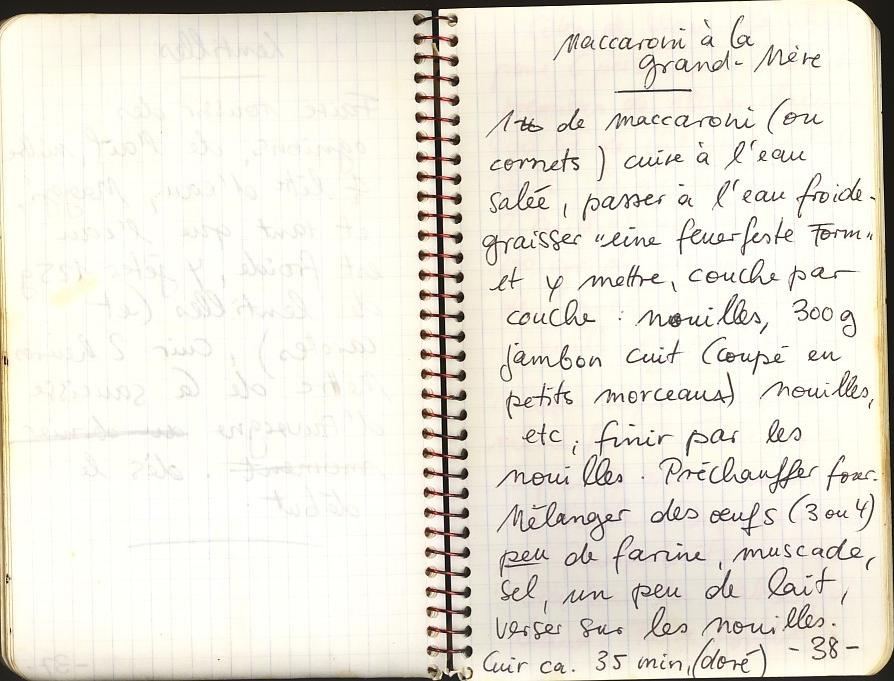 Maccaroni à la
grand-Mère
1 ℔ de maccaroni (ou
cornets) cuire à l'eau
salée, passer à l'eau froide.
graisser "eine feuerfeste Form"
et y mettre, couche par
couche : nouilles, 300 g
jambon cuit (coupé en
petits morceaux) nouilles,
etc, finir par les
nouilles. Préchauffer four.
Mélanger des œufs (3 ou 4)
peu de farine, muscade,
sel, un peu de lait,
verser sur les nouilles.
Cuir ca. 35 min, (doré) - 38 -